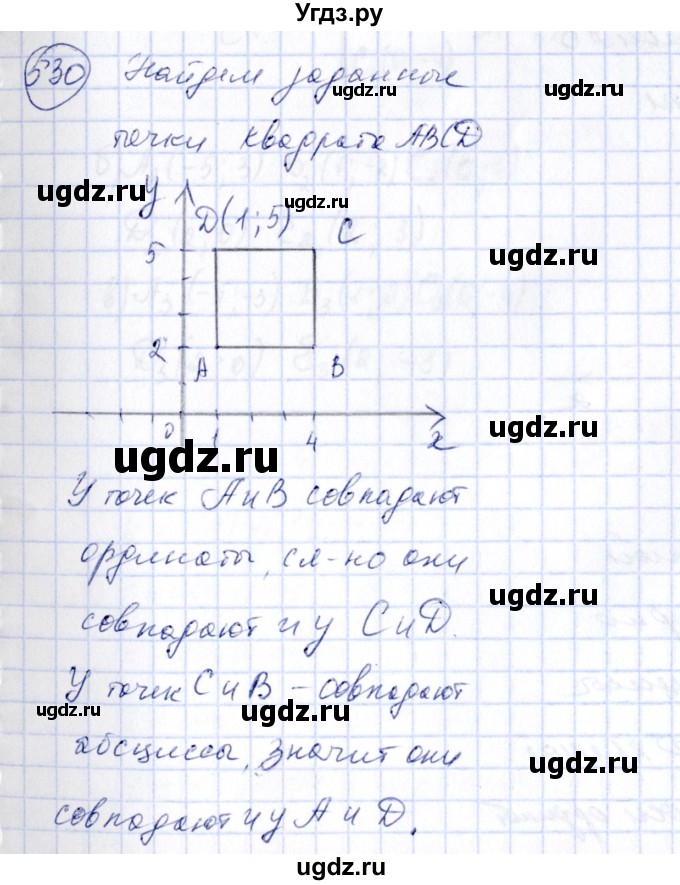 Угдз.ру
530 Найдем заданные
ugdz.ru ugdz.ru
точки квадрата ABCD
ugdz.ru ugdz.ru
y D(1;5) C
5 ugdz.ru
2 A B
0 1 4 x
ugdz.ru ugdz.ru
У точек A и B совпадают
ординаты, сл-но они
ugdz.ru
совпадают и у C и D.
У точек C и B – совпадают
ugdz.ru ugdz.ru
абсциссы, значит они
ugdz.ru
совпадают и у A и D.
ugdz.ru